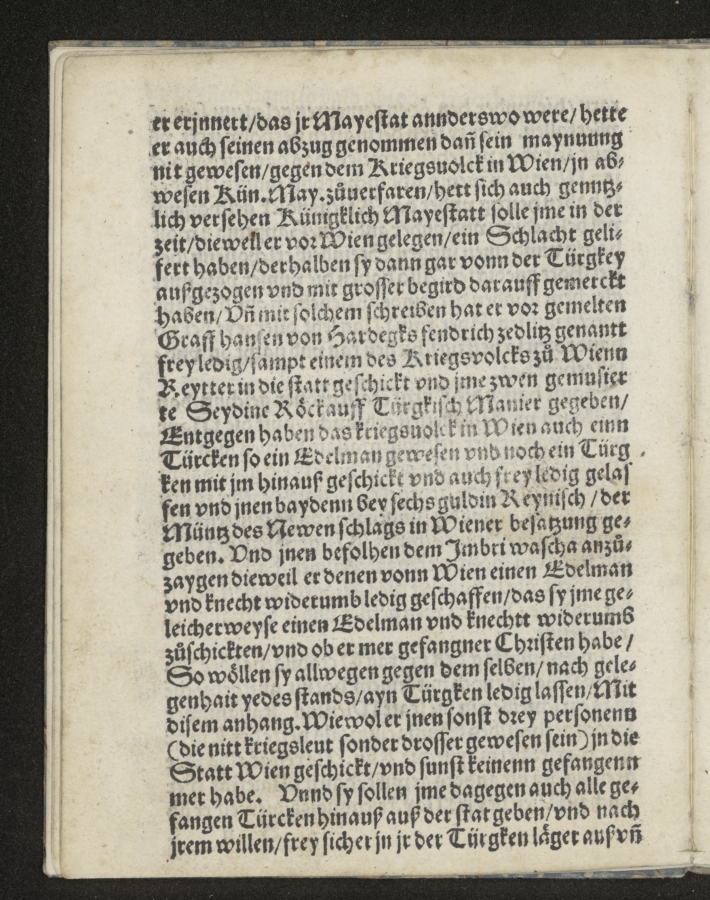 er erjnnert/das jr Mayestat annderswo were/ hette
er auch seinen abzug genommen dañ sein maynunng
nit gewesen/gegen dem Kriegsuolck in Wien/jn ab⸗
wesen Kün.May.zůuerfaren/hett sich auch genntz⸗
lich versehen Künigklich Mayestatt solle jme in der
zeit/dieweil er vor Wien gelegen/ein Schlacht geli⸗
fert haben/derhalben sy dann gar vonn der Türgkey
außgezogen vnd mit grosser begird darauff gemerckt
haben/ Vñ mit solchem schreiben hat er vor gemelten
Graff hansen von Hardegks fendrich zedlitz genantt
frey ledig/sampt einem des Kriegsvolcks zů Wienn
Reytter in die statt geschickt vnd jme zwen gemusier
te Seydine Röck auff Türgkisch Manier gegeben/
Entgegen haben das kriegsuolck in Wien auch einn
Türcken so ein Edelman gewesen vnd noch ein Türg
ken mit jm hinauß geschickt vnd auch frey ledig gelas
sen vnd jnen baydenn bey sechs guldin Reynisch /der
Müntz des Newen schlags in Wiener besatzung ge⸗
geben. Vnd jnen befolhen dem Imbri wascha anzů⸗
zaygen dieweil er denen vonn Wien einen Edelman
vnd knecht widerumb ledig geschaffen/das sy jme ge⸗
leicher weyse einen Edelman vnd knechtt widerumb
zůschickten/vnd ob er mer gefangner Christen habe /
So wöllen sy allwegen gegen dem selben/ nach gele⸗
genhait yedes stands/ayn Türgken ledig lassen/Mit
disem anhang.Wiewol er jnen sonst drey personenn
(die nitt kriegsleut sonder drosser gewesen sein)jn die
Statt Wien geschickt/vnd sunst keinenn gefangenn
mer habe. Vnnd sy sollen jme dagegen auch alle ge⸗
fangen Türcken hinauß auß der stat geben/vnd nach
jrem willen/frey sicher jn jr der Türgken läger auß vñ